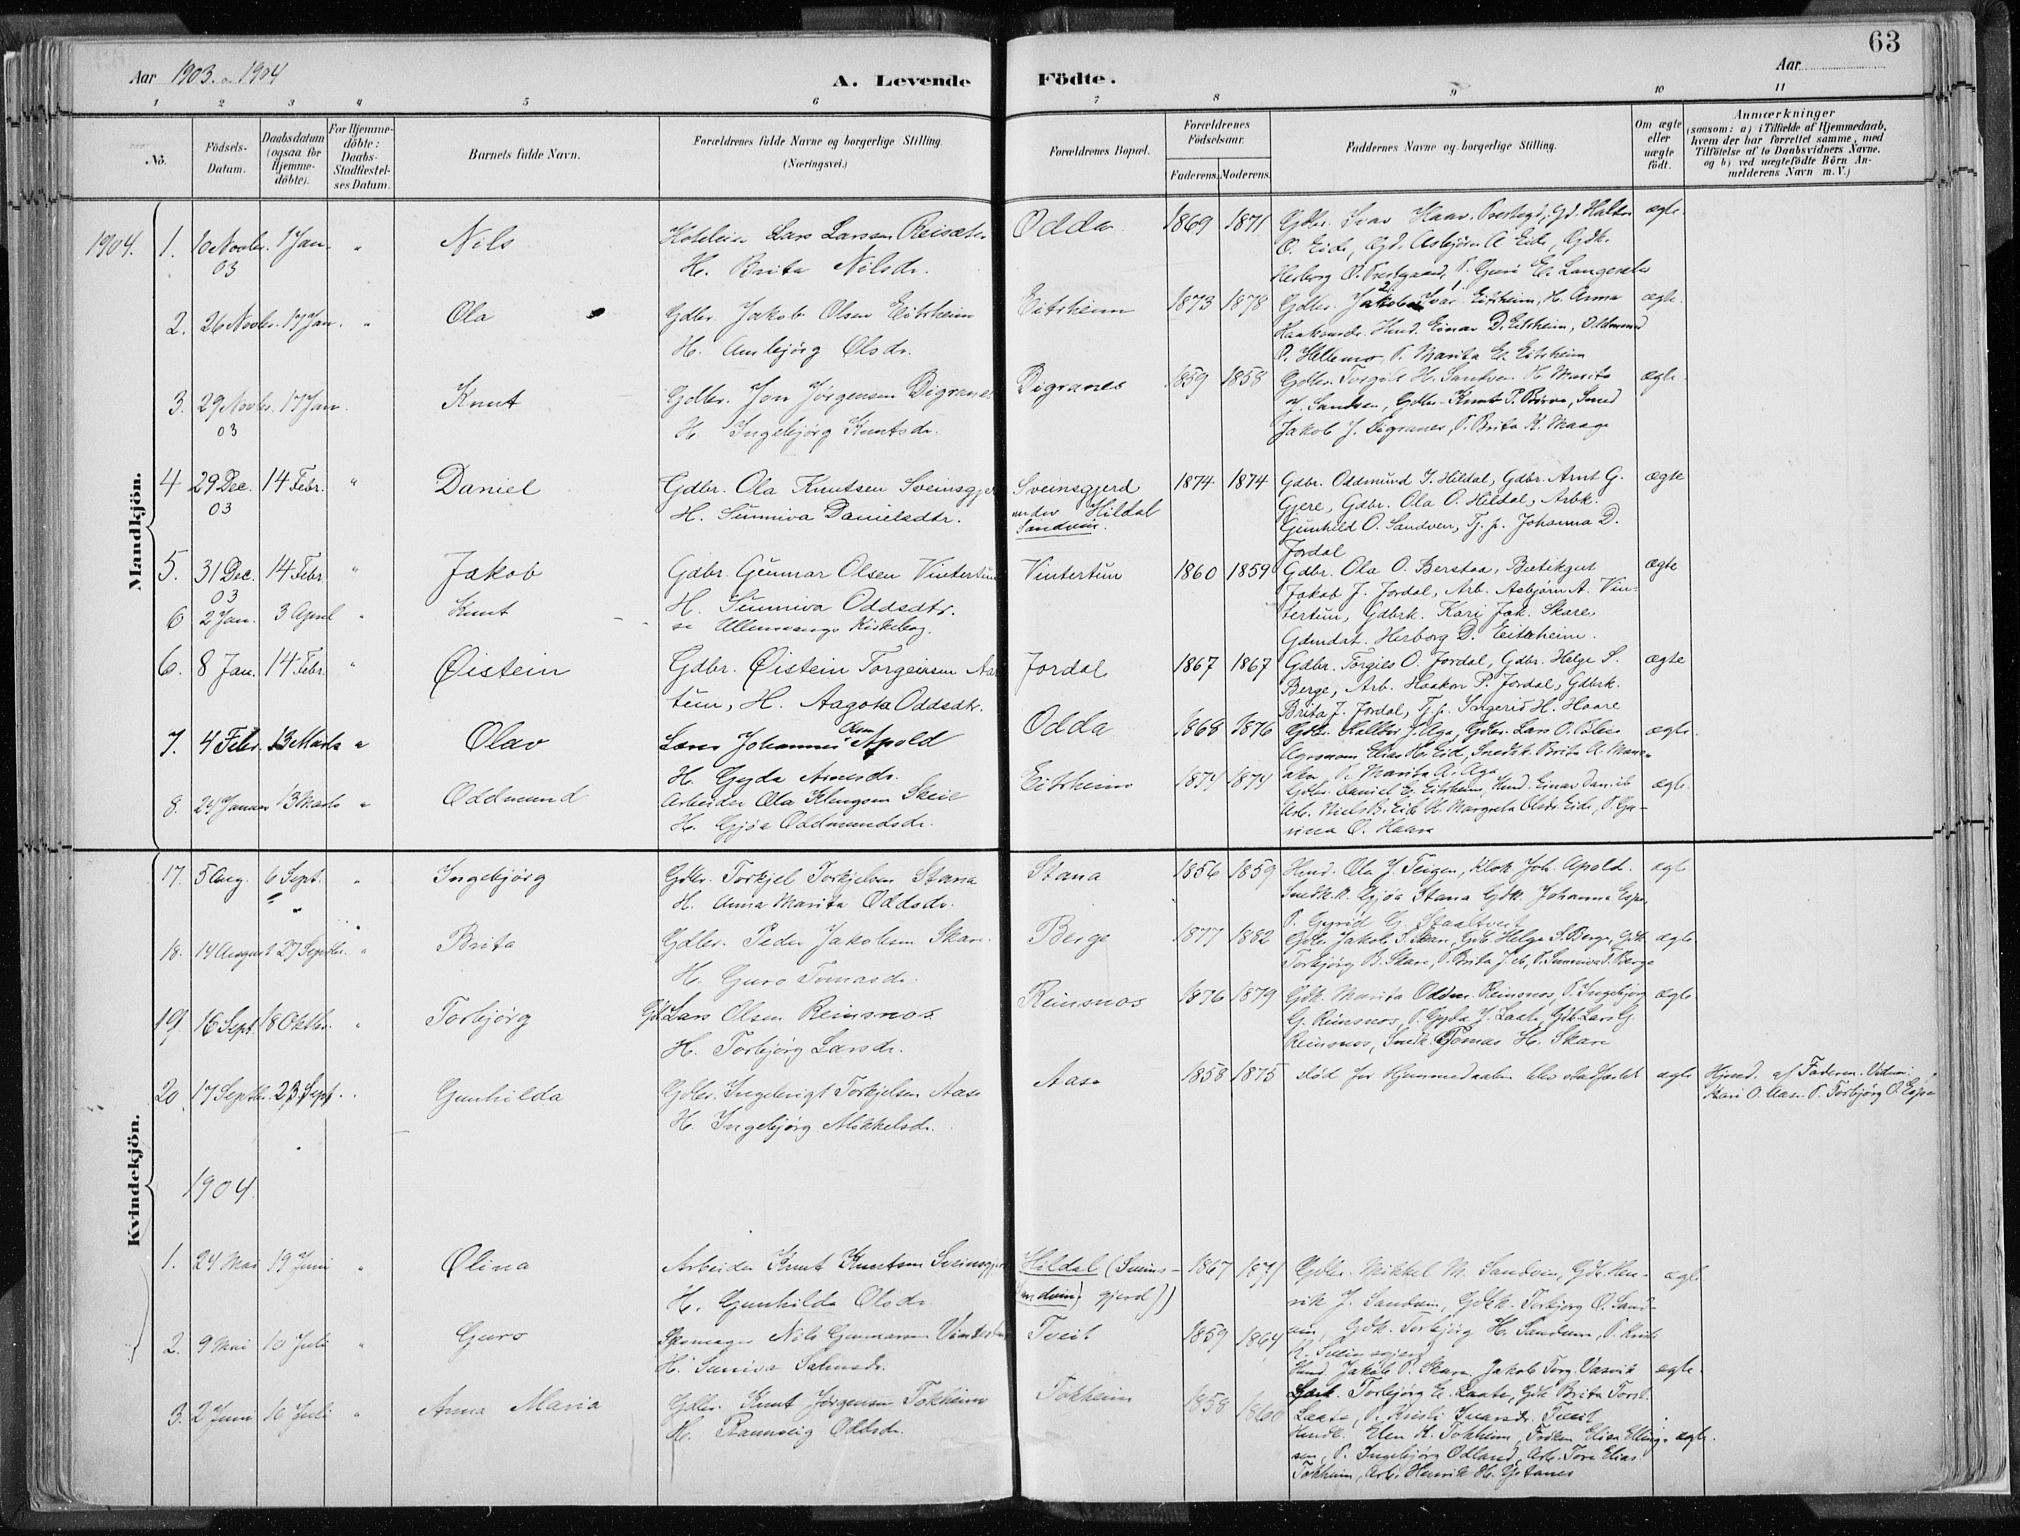 63
Aar 1903 & 1904
A. Levende Födte.
Aar
1 2 3 4 5 6 7 8 9 10 11
No.
Födsels-Datum.
Daabsdatum (ogsaa for Hjemme-döbte).
For Hjemme-döbte: Daabs-Stadfæstel-ses Datum.
Barnets fulde Navn.
Forældrenes fulde Navne og borgerlige Stilling
(Næringsvei.)
Forældrenes Bopæl.
Forældrenes Födselsaar.
Faderens. Moderens.
Faddernes Navne og borgerlige Stilling.
Om ægte eller uægte födt.
Anmærkninger
(saasom: a) i Tilfælde af Hjemmedaab, hvem der har forrettet samme, med Tilföielse af to Daabsvidners Navne, og b) ved uægtefödte Börn An-melderens Navn m. V.)
Mandkjön.
1904. 1. 10 Novbr. 03 17 Jan. " Nils
Lars Larssen Reisæter
H. Brita Nilsdr.
Odda 1869 1871
O. Eide, Gd. Asbjörn A. Eide, Gdk.
ægte.
2. 26 Novbr. 17 Jan. " Ola
Gdbr. Jakob Olsen Eitrheim
H. Ambjörg Olsdr.
Eitrheim 1873 1878
Haaksensdr. Ind. Einar D. Eitrheim, Oddmund
P. Hellemo, P. Marita E. Eitrheim
ægte.
3. 29 Novbr. 03 17 Jan. Knut
Gdbr. Jon Jörgensen Digranes
H. Ingebjörg Knutsdr.
Digranes 1859 1858
Gdbr. Torgils H. Sandven H. Marita
J. Sandven, Gdbr. Knut P. Börve, Smed
Jakob J. Digranes, P. Brita K. Maage
ægte.
4 29 Dec. 03 14 Febr. " Daniel
Gdbr. Ola Knutsen Sveinsgjerd
H. Sunniva Danielsdtr.
Sveinsgjerd under Hildal
Sandvin.
1874 1874
Gdbr. Oddmund J. Hildal, Gdbr. Arnt G.
Gjere, Gdbr. Ola O. Hildal, Arbk.
Gunhild O. Sandven, Tj. p. Johanna D.
Jordal
ægte
5. 31 Dec. 03 14 Febr. " Jakob
Gdbr. Gunnar Olsen Vintertun
H. Sunniva Oddsdtr.
Vintertun 1860 1859
Gdbr. Ola O. Berstaa, Butikgut
Jakob J. Jordal, Arb. Asbjörn A. Vin-
tertun, Gdbrk. Kari Jak. Skare,
Gdmdat. Herborg D. Eitrheim.
ægte
6 2 Jan. 3 April " Knut
se Ullensvangs Kirkebog.
6. 8 Jan. 14 Febr. " Øistein
Gdbr. Øistein Torgeirsen Aar
tun, H. Aagota Oddsdtr.
Jordal 1867 1867
Gdbr. Torgils O. Jordal, Gdbr. Helge S.
Berge, Arb. Haakon P. Jordal, Gdbrk.
Brita J. Jordal, Tj. p. Ingerid H. Haare
ægte
7. 4 Febr. 13 Marts " Olav
Lars Johannes Olsen Apold
H. Gyda Arnesdr.
Odda 1868 1876
Agronom Elias H. Eid, Snedk. Brita A. Mann-
aker P. Marita A. Aga
ægte
8. 24 Januar 13 Marts " Oddmund
Arbeider Ola Klengsen Skeie
H. Gjøa Oddmundsdr.
Eitrheim 1874 1874
Gdbr. Daniel E. Eitrheim, Ind. Einar Daniels
Arb. Niels B. Eide H. Margreta Olsdr. Eide, P. Gu-
rina O. Haare
ægte.
Kvindekjön.
17. 5 Aug. 6 Sept. " Ingebjörg
Gdbr. Torkjel Torkjelsen Stana
H. Anna Marita Oddsdr.
Stana 1856 1859
Ind. Ola J. Teigen, Klok. Joh. Apold.
Snedk. K. Gjøa Stana Gdk. Johanna Espe,
P. Gyrid G. Staaltveit
ægte
18. 14 August 27 Septbr. " Brita
Gdbr. Peder Jakobsen Skare.
H. Guro Tomasdr.
Berge 1877 1882
Gdbr. Jakob S. Skare, Gdb. Helge S. Berge, Gdk
Torbjörg B. Skare, P. Brita J. , P. Sunniva T. Berge
ægte
19. 16 Sept. 18 Oktbr. " Torbjörg
Gdb. Lars Olsen Reinsnos
H. Torbjörg Larsdr.
Reinsnos 1876 1879
Gdk. Marita Oddm. Reinsnos, P. Ingebjörg
G. Reinsnos, P. Gyda J. Laate, Gdb. Lars G.
Reinsnos, Snedk. Tomas H. Skare
ægte.
20 17 Septbr. 23 Sept. " Gunhilda
Gdbr. Ingebrigt Torkjelsen Aase
H. Ingebjörg Mikkelsdr.
Aase 1858 1875
död før Hjemmedaaben blev stadfæstet
ægte
Hjmd. af Faderen. Vidne:
Kari O. Aase P. Torbjörg O. Espe
1904.
1. 24 Mai 19 Juni " Olina
Arbeider Knut Knutsen Sveinsgjerd
H. Gunhilda Olsdr.
Hildal (Sveins-
gjerd)
Sandvin
1867 1871
Gdbr. Mikkel M. Sandven, Gdb. Hen-
rik J. Sandven, Gdbk. Torbjörg O. Sand-
ven, Gdk. Torbjörg H. Sandven, P.
K. Sveinsgjerd
ægte
2. 9 Mai 10 Juli " Guro
Skomager Nils Gunnarsen Vintertun
H. Suniva Salmsdr.
Tveit 1859 1864
Ind. Jakob P. Skare Jakob Torg. Vasvik
Torbjörg E. Laate, Gdk Brita Torst.
Laate, P. Kristi Ivarsdr. Tveit
ægte.
3. 2 Juni 16 Juli " Anna Maria
Gdbr. Knut Jörgensen Tokheim
H. Ranveig Oddsdr.
Tokheim 1858 1860
Elen K. Tokheim, Fröken Elisa Elling-
sen, P. Ingebjörg Odland, Arb. Tore Elias
Tokheim, Arb. Henrik H. Ystanes
ægte.